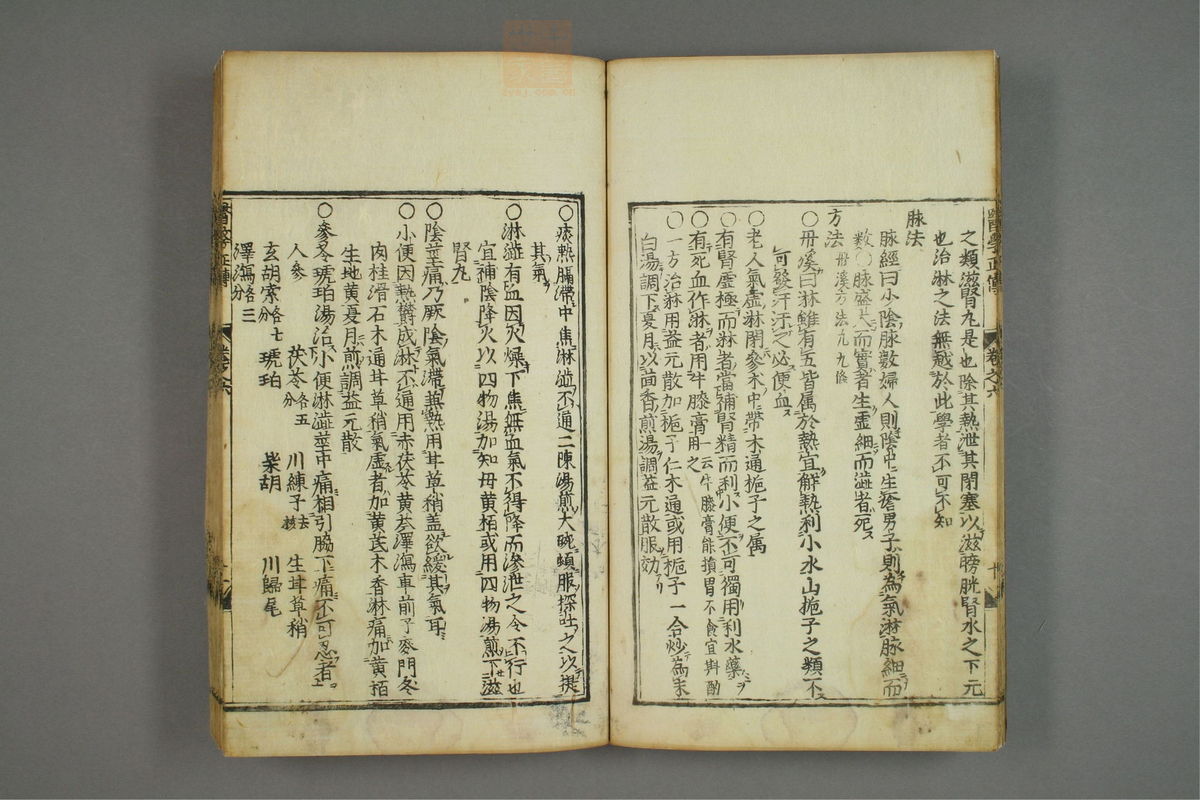 之類滋腎丸是也除其熱泄其閉塞以滋膀胱腎水之下元
也治淋之法無越於此學者不可不知
脉法
脉經曰少陰脉數婦人則陰中生瘡男子則為氣淋脉細而
數○脉盛大而實者生虚細而澁者死
方法 丹溪方法凡九條
○丹溪曰淋雖有五皆属於熱宜解熱利小水山梔子之類不
可發汗汗之必便血
○老人氣虚淋閉參朮中帶木通梔子之属
○有腎虚極而淋者當補腎精而利小便不可獨用利水藥
○有死血作淋者用牛膝膏一云牛膝膏能損胃不食宜斟酌用之
○一方治淋用益元散加梔子仁木通或用梔子一合炒為末
白湯調下夏月以茴香煎湯調益元散服効
○痰熱膈滯中焦淋澁不通二陳湯煎大碗頓服探吐之以提
其氣
○淋澁有血因火燥下焦無血氣不得降而滲泄之令不行也
宜補陰降火以四物湯加知母黄栢或用四物湯煎下滋
腎丸
○陰莖痛乃厥陰氣滯兼熱用甘草稍盖欲緩其氣耳
○小便因熱欝成淋不通用赤茯苓黄芩澤瀉車前子麥門冬
肉桂滑石木通甘草稍氣虚者加黄芪木香淋痛加黄栢
生地黄夏月煎調益元散
○參苓琥珀湯治小便淋澁莖中痛相引脇下痛不可忍者
人參 茯苓各五分 川練子去核 生甘草稍
玄胡索各七分 琥珀 柴胡 川歸尾
澤瀉各三分
醫學正傳 卷之六
醫學正傳 卷之六